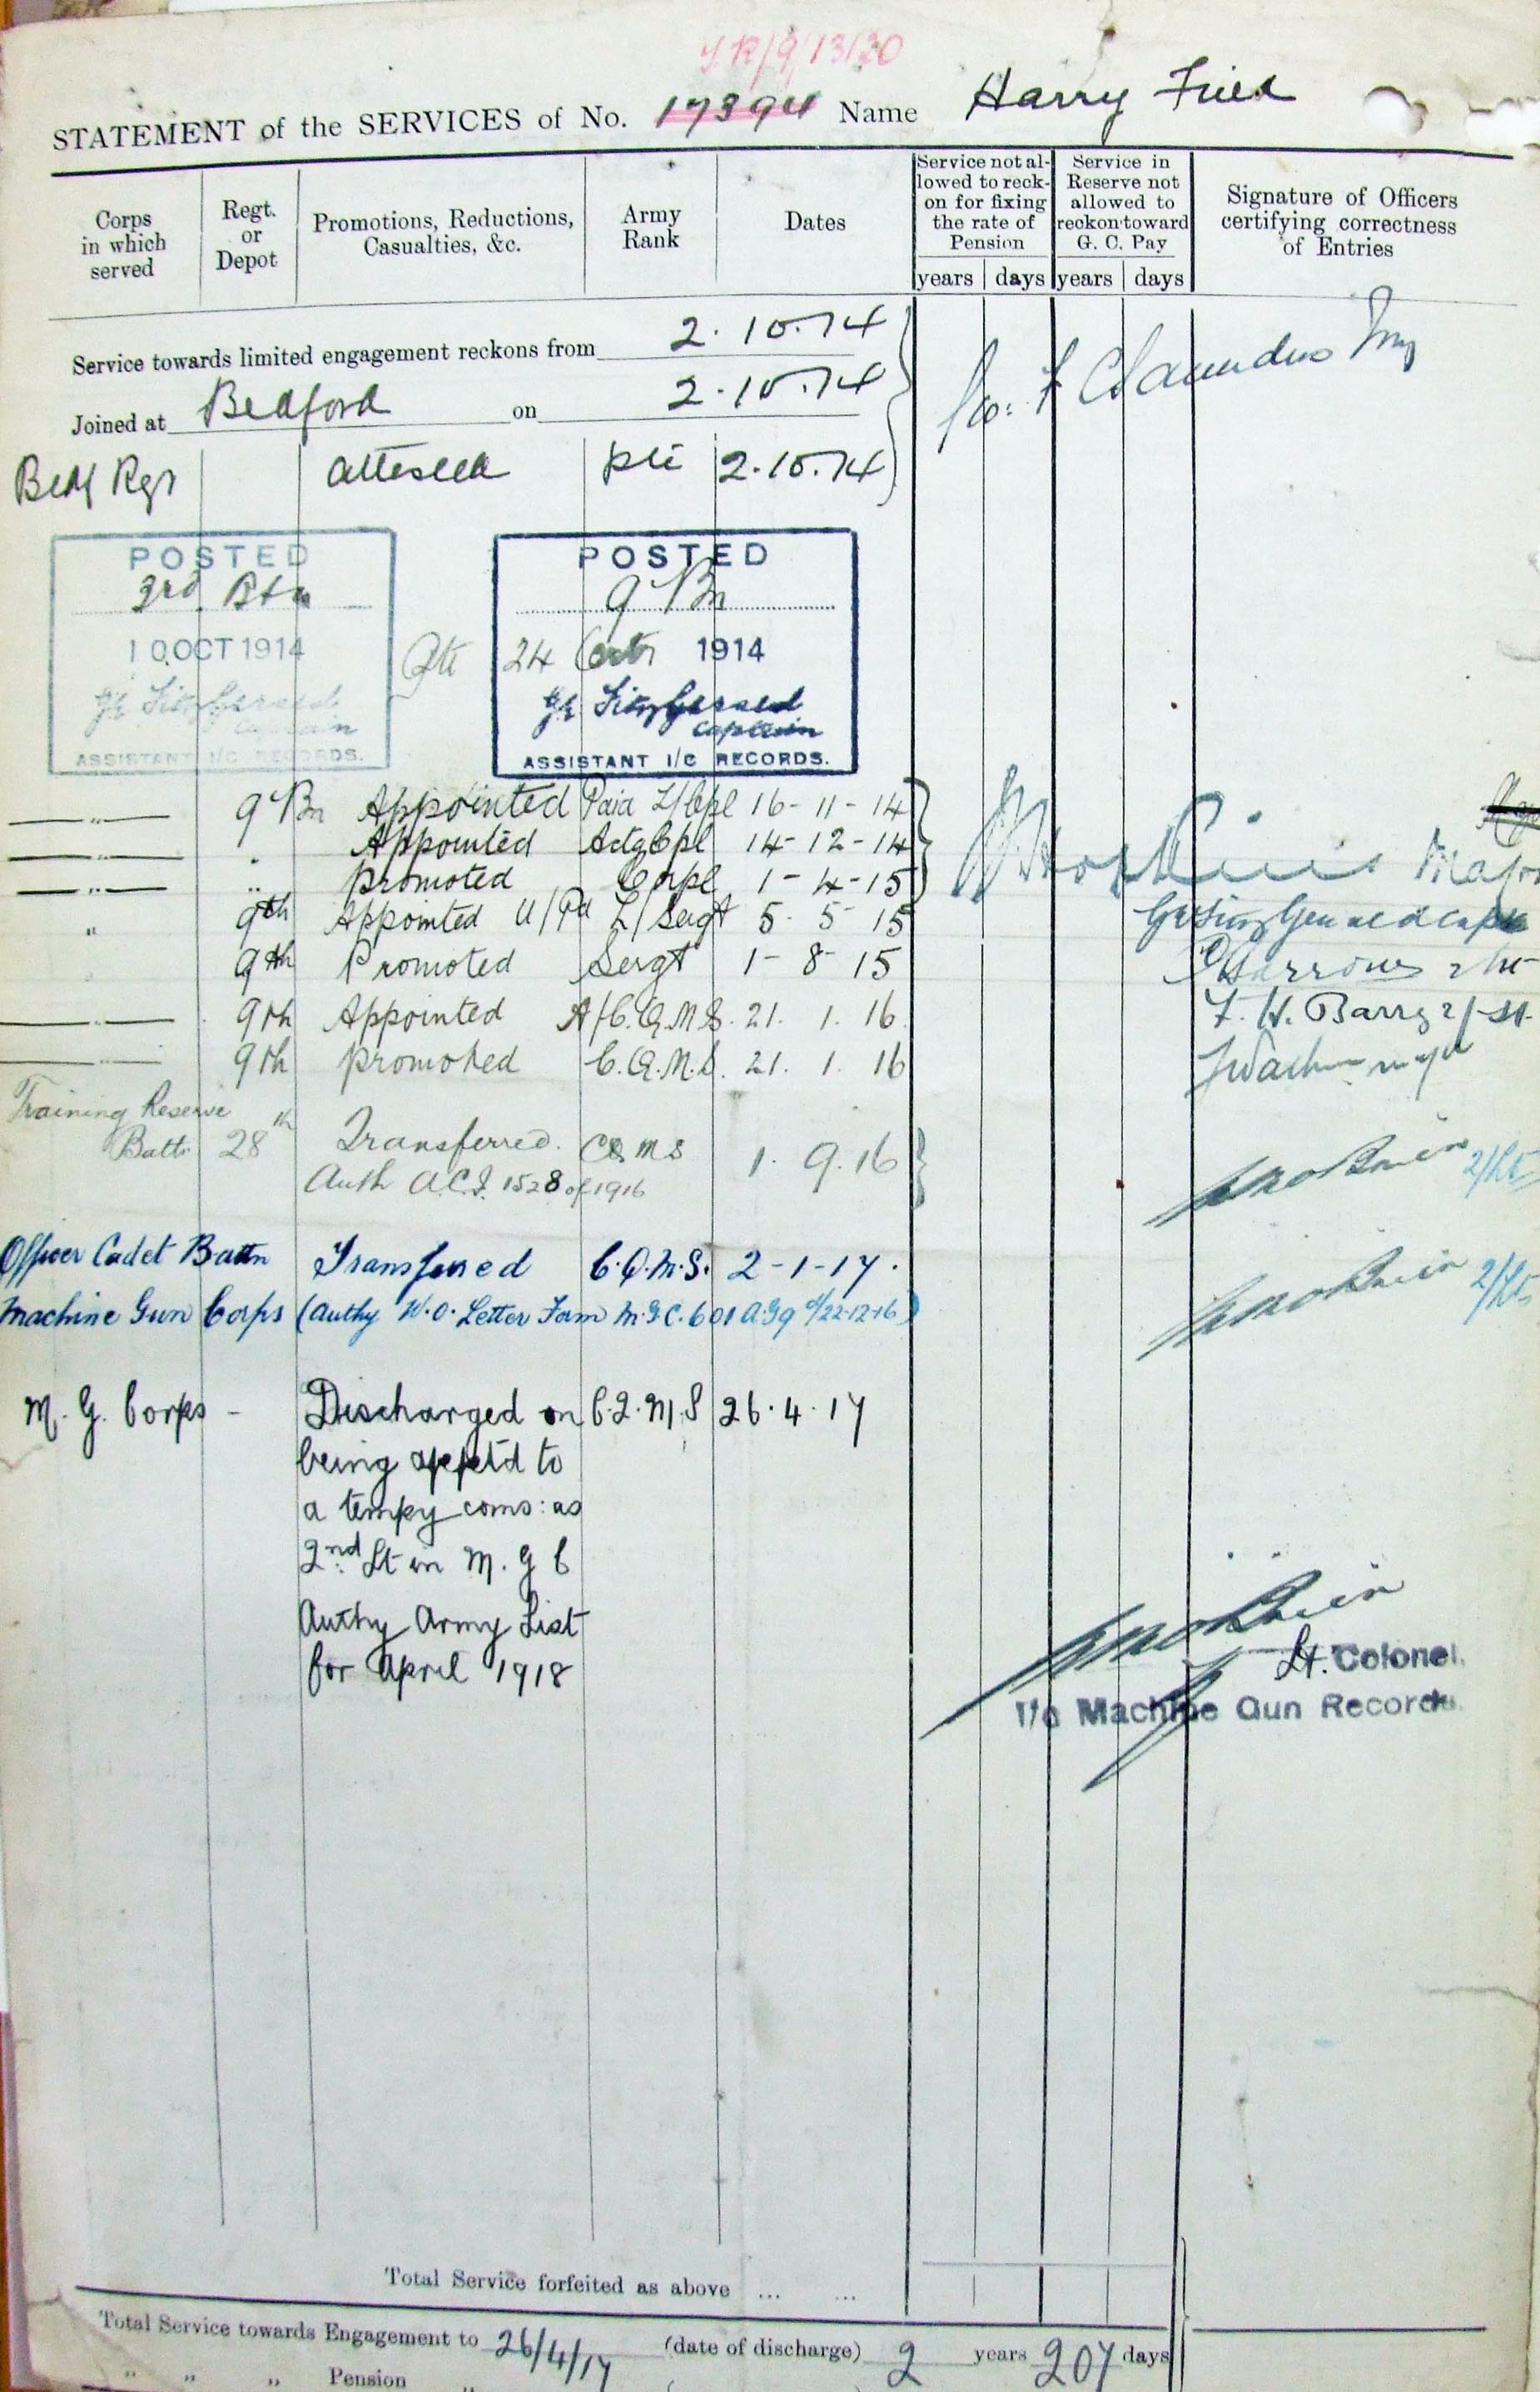 T.R/9/13130
STATEMENT of the SERVICES of No. 17394 Name Harry Fried
Corps in which served
Regt. or Depot
Promotions, Reductions, Casualties, &c.
Army Rank
Dates
Service not al-lowed to reck-on for fixing the rate of Pension
years days
Service in Reserve not allowed to reckon toward G. C. Pay
years days
Signature of Officers certifying correctness of Entries
Service towards limited engagement reckons from 2.10.14
Joined at Bedford on 2.10.14
Bedf Rgt attested pte 2.10.14
POSTED
3rd Btn
10 OCT 1914
Fitzgerald
Captain
ASSISTANT I/C RECORDS.
Pte
POSTED
9 Bn
24 Octr 1914
Fitzgerald
Captain
ASSISTANT I/C RECORDS.
" 9 Bn Appointed Paid L/Cpl 16-11-14
" . Appointed Actg Cpl 14-12-14
" " promoted Corpl 1-4-15 Major
" 9th Appointed U/Pd L/Sergt 5 5 15
9th Promoted Sergt 1-8-15
" 9th Appointed A/C.Q.M.S. 21. 1. 16 F. H. Barry 2/Lt.
9th promoted C.Q.M.S. 21. 1. 16
Training Reserve
Battn 28th Transferred. CQMS 1. 9. 16 2/Lt
Auth A.C.I. 1528 of 1916
Officer Cadet Battn Transferred C.Q.M.S. 2-1-17. 2/Lt
Machine Gun Corps (Authy W.O. Letter Form M.G.C. 601 A.G9 d/22-12-16)
M. G. Corps - Discharged on C.Q.M.S 26.4.17
being apptd to
a tempy coms: as
2nd Lt in M. G C
Authy Army List
for April 1918
Lt. Colonel.
I/c Machine Gun Records.
Total Service forfeited as above ... ...
Total Service towards Engagement to 26/4/17 (date of discharge) 2 years 207 days
" " " Pension "